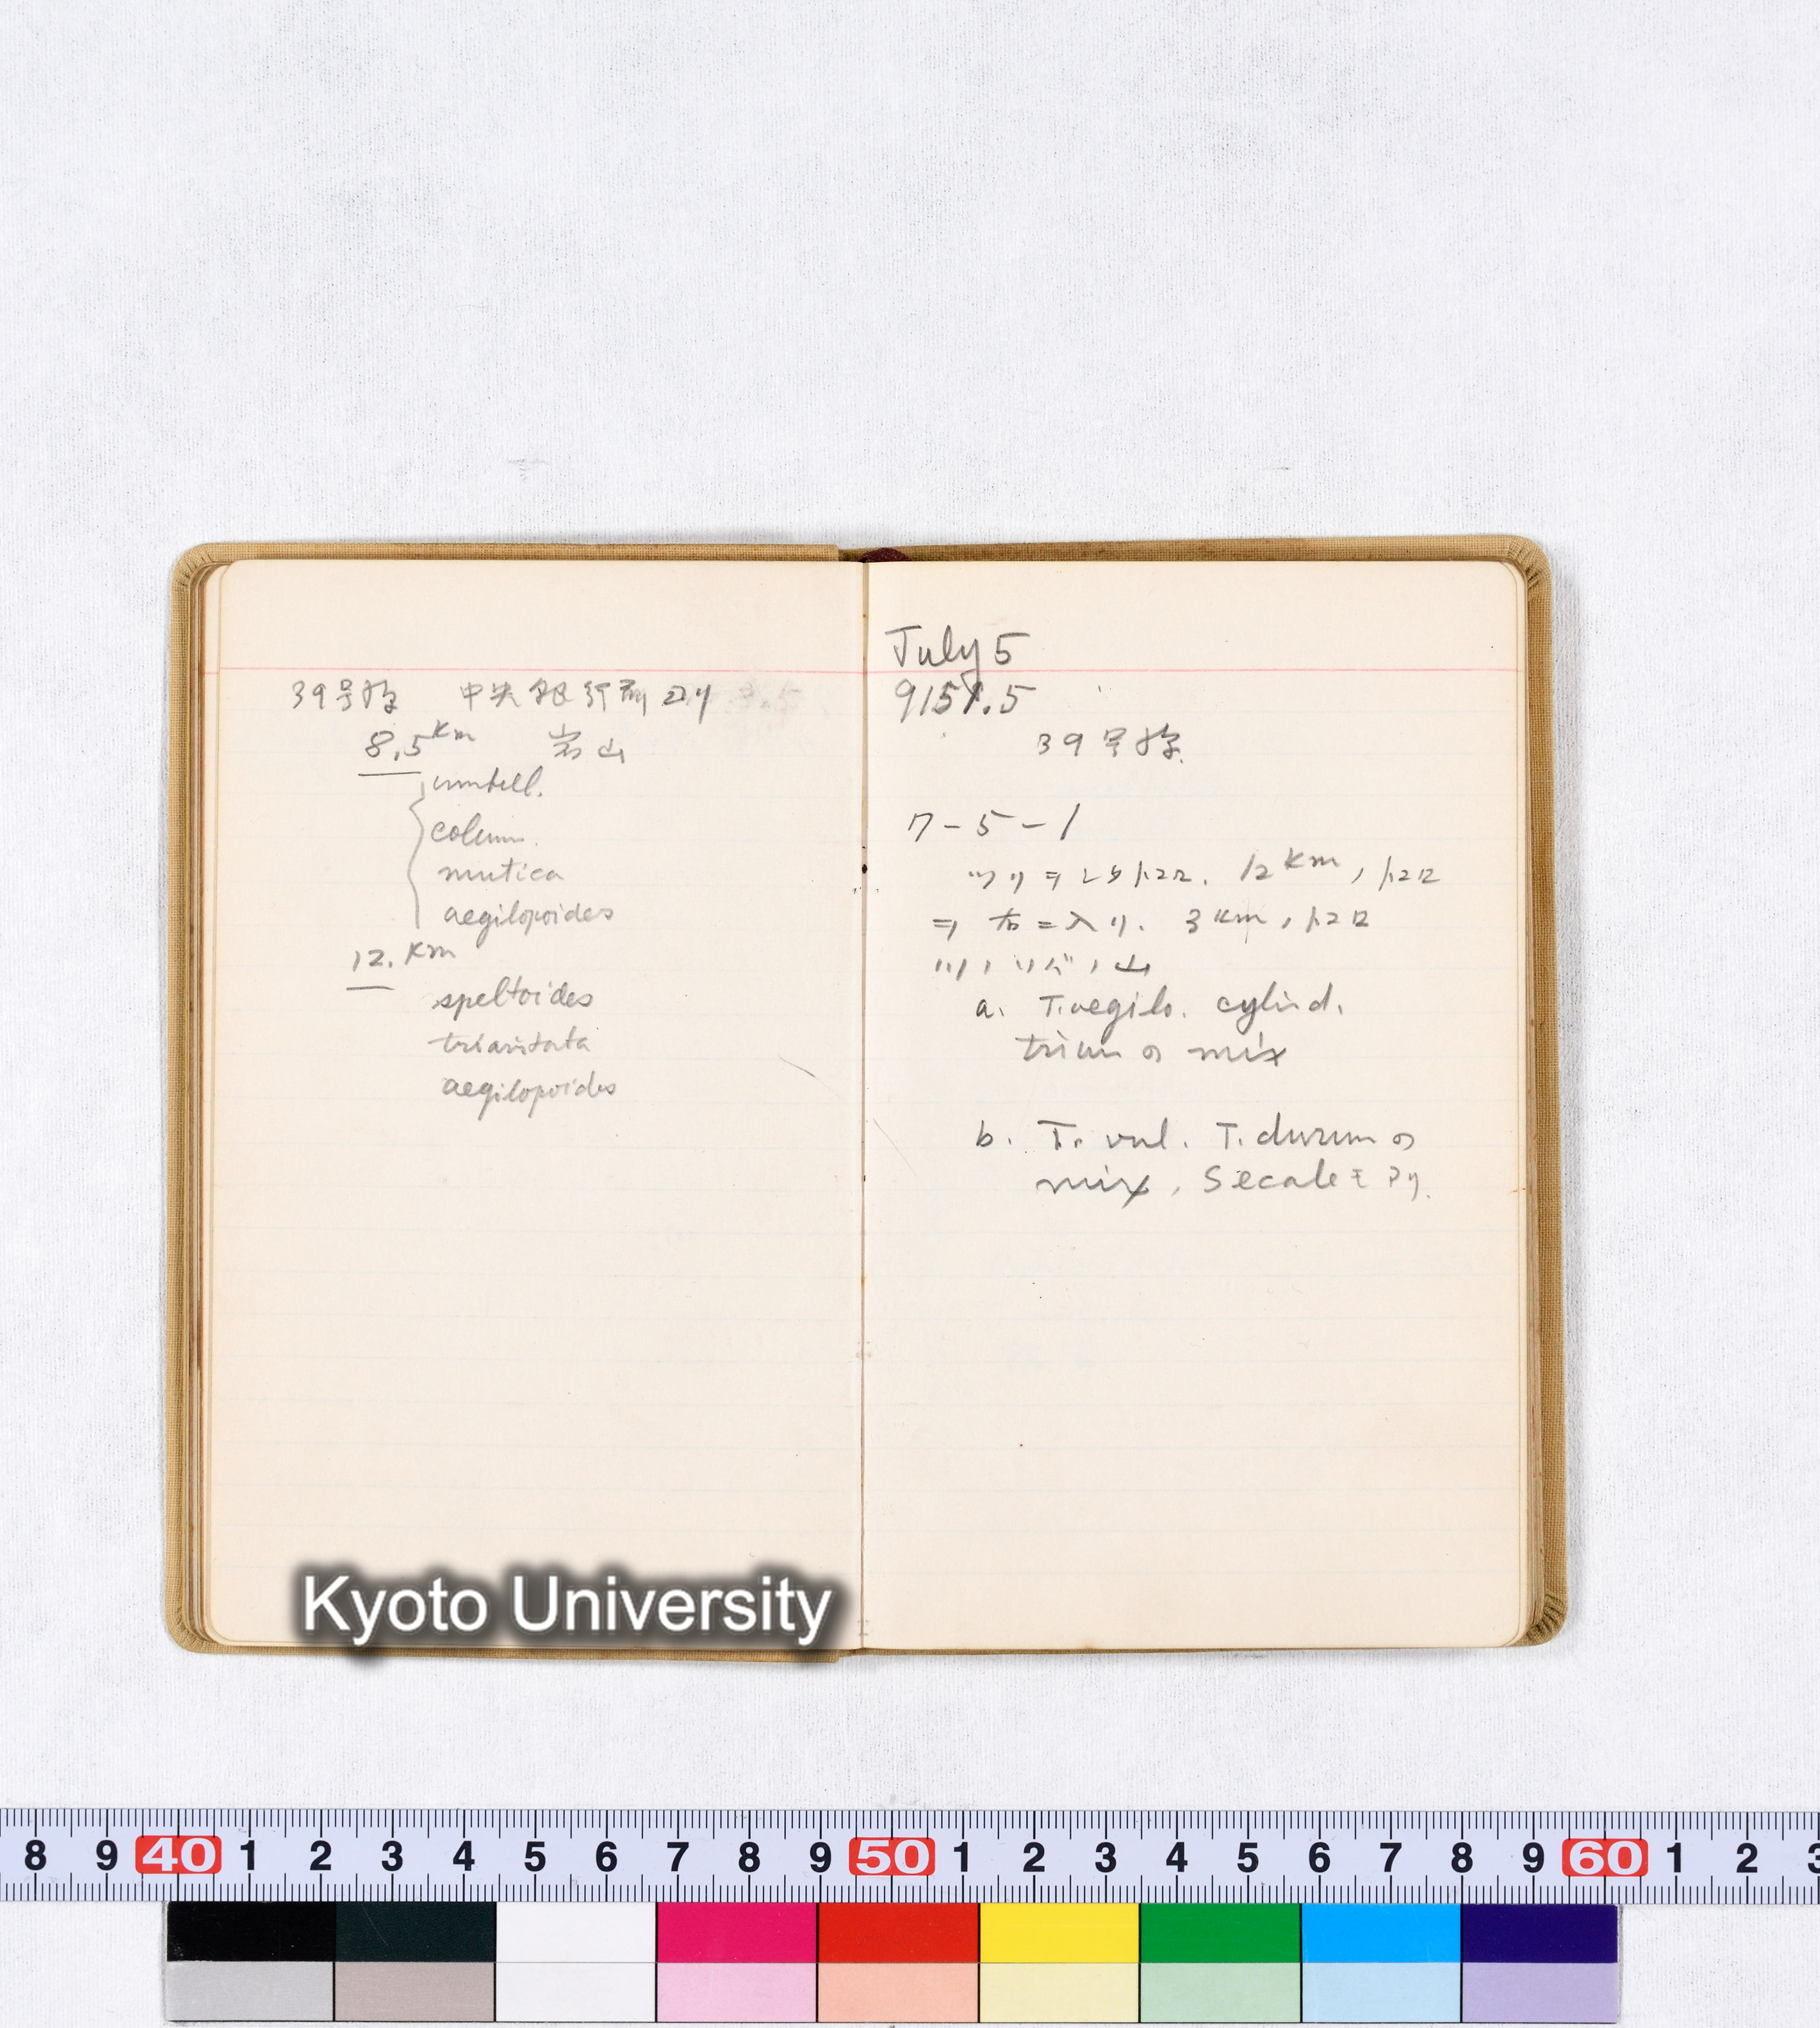 39号線 中央銀行前ヨリ
8.5Km 岩山
umbell.
colum.
mutica
aegilopoides
12.Km
speltoides
triaristata
aegilopoides
July 5
9151.5
39号線
7-5-1
トコロ. 12Km,トコロ
ヨリ 右ニ入リ. 3Km,トコロ
山
a. T.aegilo. cylind.
triun の mix
b. T. vul. T. durum の
mix, Secaleモアリ.
Kyoto University
8 9 40 1 2 3 4 5 6 7 8 9 50 1 2 3 4 5 6 7 8 9 60 1 2 3